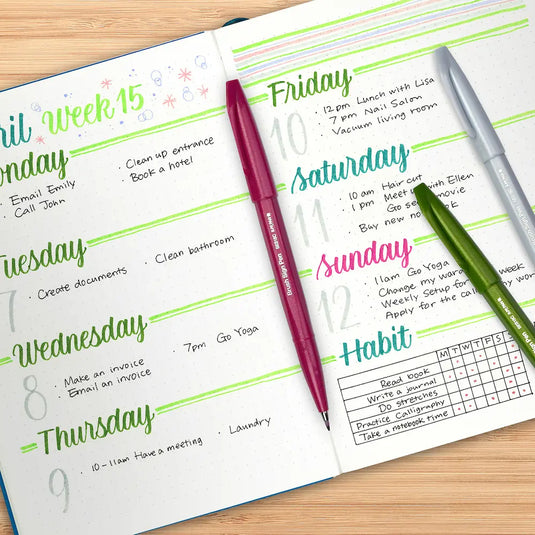 ril Week 15
onday
· Email Emily
· Call John
· Clean up entrance
· Book a hotel
Tuesday
7
· Create documents
· Clean bathroom
Wednesday
8
· Make an invoice
· Email an invoice
· 7pm Go Yoga
Thursday
9
· 10-11am Have a meeting
· Laundry
Friday
10
· 12pm Lunch with Lisa
· 7pm Nail Salon
· Vacuum living room
saturday
11
· 10am Hair cut
· 1pm Meet with Ellen
Go movie
· Buy new
sunday
12
· 11am Go Yoga
· Change my week
· Weekly Setup for
· Apply for the
Habit
M T W T F S
Read book
Write a journal
Do stretches
Practice Calligraphy
Take a notebook time
Brush Sign Pen